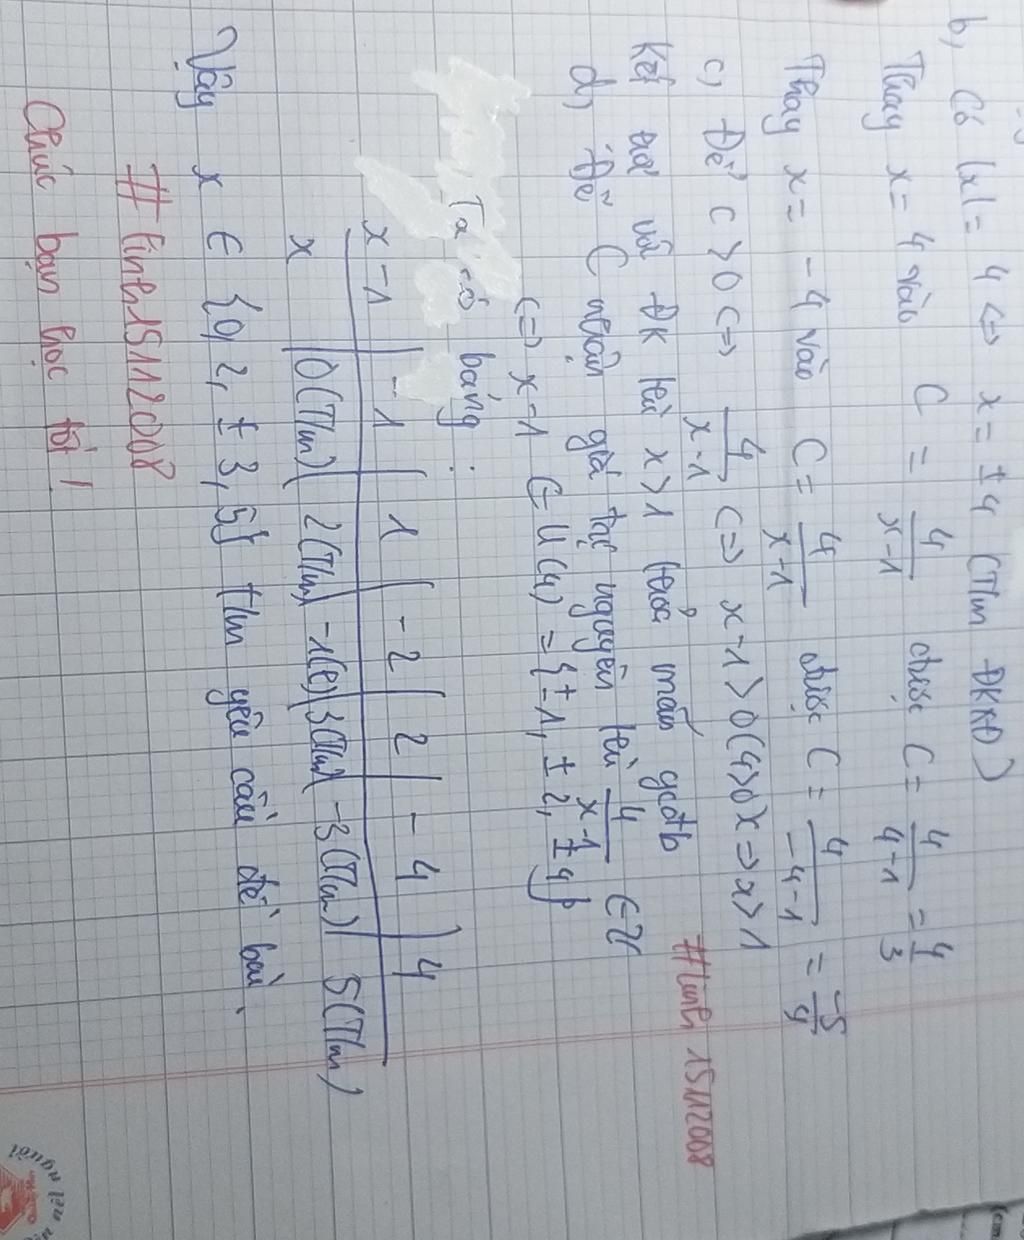 b, Có |x| = 4 <=> x = ± 4 (T/m ĐKXĐ)
Thay x = 4 vào C = 4/x-1 được C = 4/4-1 = 4/3
Thay x = - 4 vào C = 4/x-1 được C = 4/-4-1 = -5/4
c, Để C > 0 <=> 4/x-1 <=> x-1 > 0 (4>0) => x > 1
#linh15112008
Kết với ĐK x > 1 thoả mãn
d, Để C nhận giá trị nguyên 4/x-1 ∈ Z
<=> x-1 ∈ Ư(4) = {±1, ± 2, ± 4}
Ta có bảng :
x -1 | -1 | 1 | - 2 | 2 | - 4 | 4
x | 0(T/m) | 2(T/m) | -1(l) | 3(T/m) | -3(T/m) | 5(T/m)
Vậy x ∈ {0, 2, ± 3, 5} t/m yêu cầu đề bài.
#linh15112008
Chúc bạn học tốt !